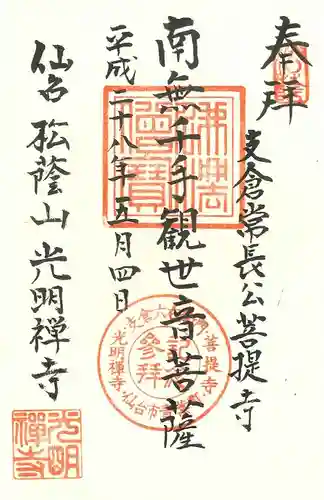 奉拝
支倉常長公菩提寺
南無千手観世音菩薩
平成二十八年五月四日
仙台 松蔭山 光明禅寺
佛法僧寳
参拝
記念
光明禅寺
菩提寺
仙台市青葉
光明禅寺